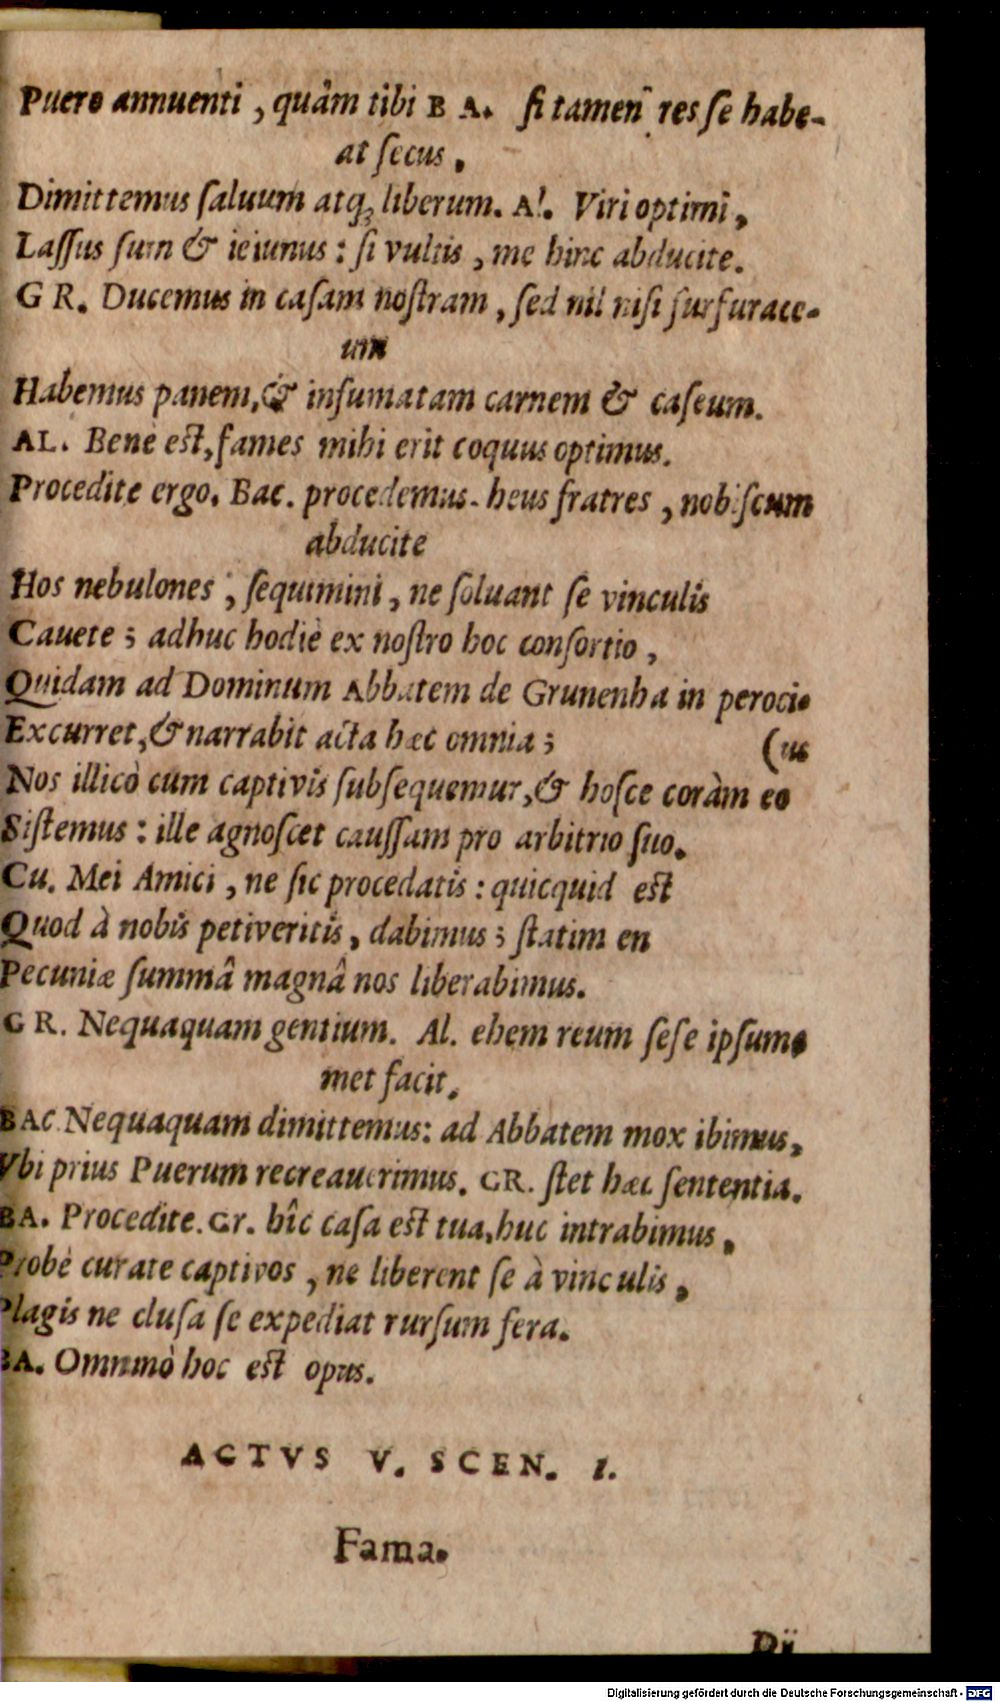 Puero annuenti, quâm tibi B A. ſi tamen res ſe habe-
at ſecus.
Dimittemus ſaluum atq; liberum. Al. Viri optimi,
Laſſus ſum & ieiunus: ſi vultis, me hinc abducite.
G R. Ducemus in caſam noſtram, ſed nil niſi furfurace-
um
Habemus panem, & infumatam carnem & caſeum.
AL. Bene eſt, fames mihi erit coquus optimus.
Procedite ergo. Bac. procedemus. heus fratres, nobiſcum
abducite
Hos nebulones, ſequimini, ne ſoluant ſe vinculis
Cauete; adhuc hodiè ex noſtro hoc conſortio,
Quidam ad Dominum Abbatem de Grunenha in peroci-
Excurret, & narrabit acta hæc omnia; (us
Nos illicò cum captivis ſubſequemur, & hoſce coràm eo
Siſtemus: ille agnoſcet cauſſam pro arbitrio ſuo.
Cu. Mei Amici, ne ſic procedatis: quicquid eſt
Quod à nobis petiveritis, dabimus; ſtatim en
Pecuniæ ſummâ magnâ nos liberabimus.
G R. Nequaquam gentium. Al. ehem reum ſeſe ipſum-
met facit.
BAC. Nequaquam dimittemus: ad Abbatem mox ibimus,
Vbi prius Puerum recreauerimus. GR. ſtet hæc ſententia.
BA. Procedite. Gr. hîc caſa eſt tua, huc intrabimus,
Probè curate captivos, ne liberent ſe à vinculis,
Plagis ne cluſa ſe expediat rurſum fera.
BA. Omninò hoc eſt opus.
ACTVS V. SCEN. I.
Fama.
Dij
Digitalisierung gefördert durch die Deutsche Forschungsgemeinschaft - DFG